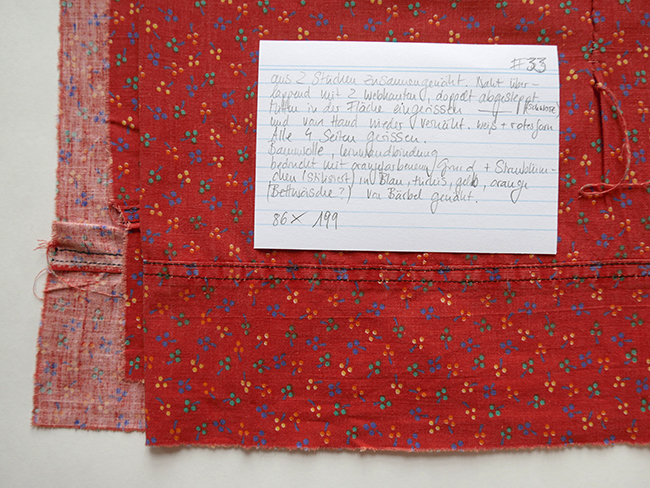 #33
aus 2 Stücken zusammengenäht. Naht über-
lappend mit 2 Webkanten, doppelt abgesteppt
in der Fläche eingerissen
und von Hand wieder vernäht. weiß + rotes Garn
Alle 4 Seiten gerissen.
Baumwolle, Leinwandbindung
bedruckt mit orangefarbenem Grund + Streublüm-
chen (stilisiert) in Blau, türkis, gelb, orange
(Bettwäsche?) von Bärbel genäht.
86 x 199